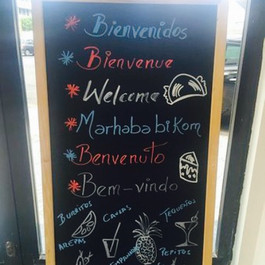 Bienvenidos
Bienvenue
Welcome
Marhaba bikom
Benvenuto
Bem-vindo
BURRITOS
CAÑAS
TEQUEÑOS
AREPAS
EMPANADAS
PEPITOS